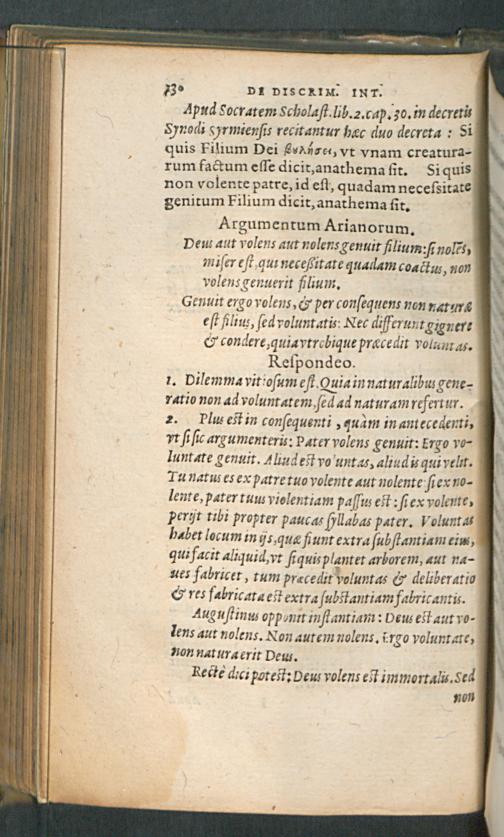 730 DE DISCRIM. INT.
Apud Socratem Scholast. lib. 2. cap. 30. in decretis
Synodi Syrmiensis recitantur hæc duo decreta : Si
quis Filium Dei βυλήσει, vt vnam creatura-
rum factum esse dicit, anathema sit. Si quis
non volente patre, id est, quadam necessitate
genitum Filium dicit, anathema sit.
Argumentum Arianorum.
Deus aut volens aut nolens genuit filium: si nolēs,
miser est, qui necessitate quadam coactus, non
volens genuerit filium.
Genuit ergo volens, & per consequens non naturæ
est filius, sed voluntatis: Nec differunt gignere
& condere, quia vtrobique præcedit voluntas.
Respondeo.
1. Dilemma vitiosum est. Quia in naturalibus gene-
ratio non ad voluntatem, sed ad naturam refertur.
2. Plus est in consequenti, quàm in antecedenti,
vt si sic argumenteris: Pater volens genuit: Ergo vo-
luntate genuit. Aliud est voluntas, aliud is qui velit.
Tu natus es ex patre tuo volente aut nolente: si ex no-
lente, pater tuus violentiam passus est : si ex volente,
perijt tibi propter paucas syllabas pater. Voluntas
habet locum in ijs, quæ fiunt extra substantiam eius,
qui facit aliquid, vt si quis plantet arborem, aut na-
ues fabricet, tum præcedit voluntas & deliberatio
& res fabricata est extra substantiam fabricantis.
Augustinus opponit instantiam : Deus est aut vo-
lens aut nolens. Non autem nolens. Ergo voluntate,
non natura erit Deus.
Rectè dici potest: Deus volens est immortalis. Sed
non